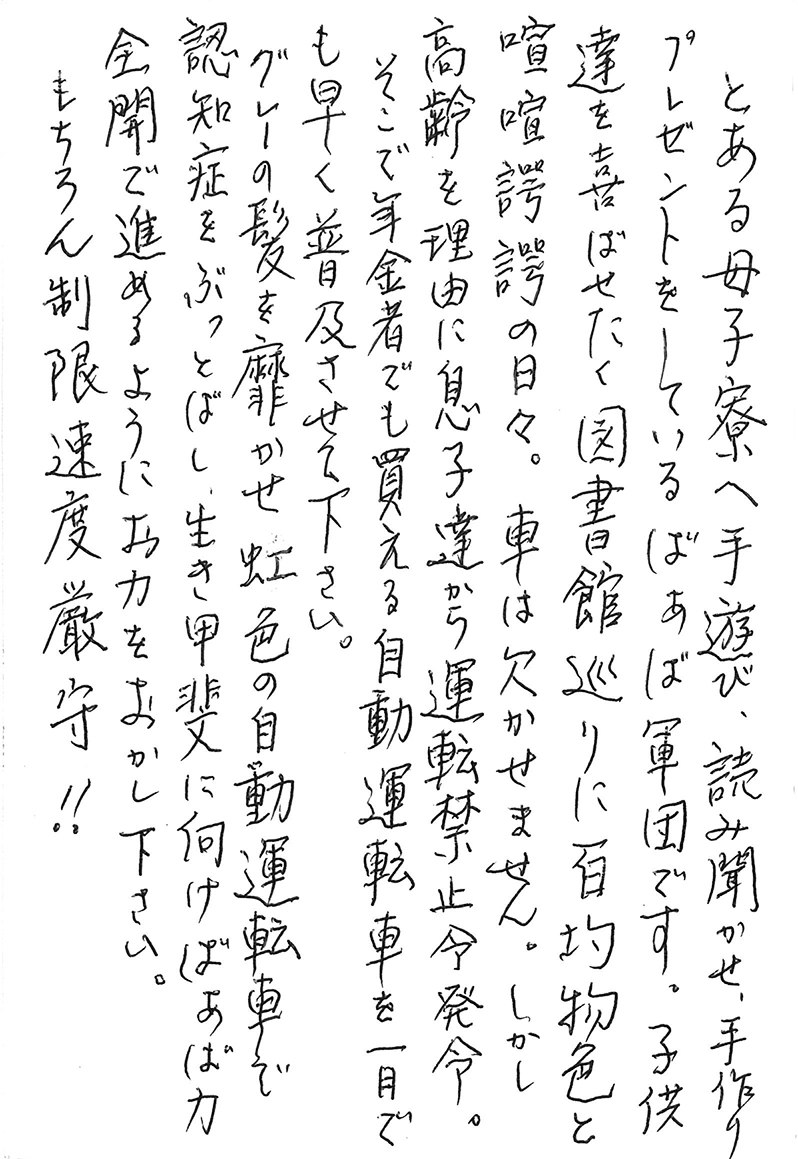 とある母子寮へ手遊び、読み聞かせ、手作り
プレゼントをしているばあば軍団です。子供
達を喜ばせたく図書館巡りに百均物色と
喧喧諤諤の日々。車は欠かせません。しかし
高齢を理由に息子達から運転禁止令発令。
そこで年金者でも買える自動運転車を一日で
も早く普及させて下さい。
グレーの髪を靡かせ虹色の自動運転車で
認知症をぶっとばし、生き甲斐に向けばあば力
全開で進めるようにお力をおかし下さい。
もちろん制限速度厳守!!